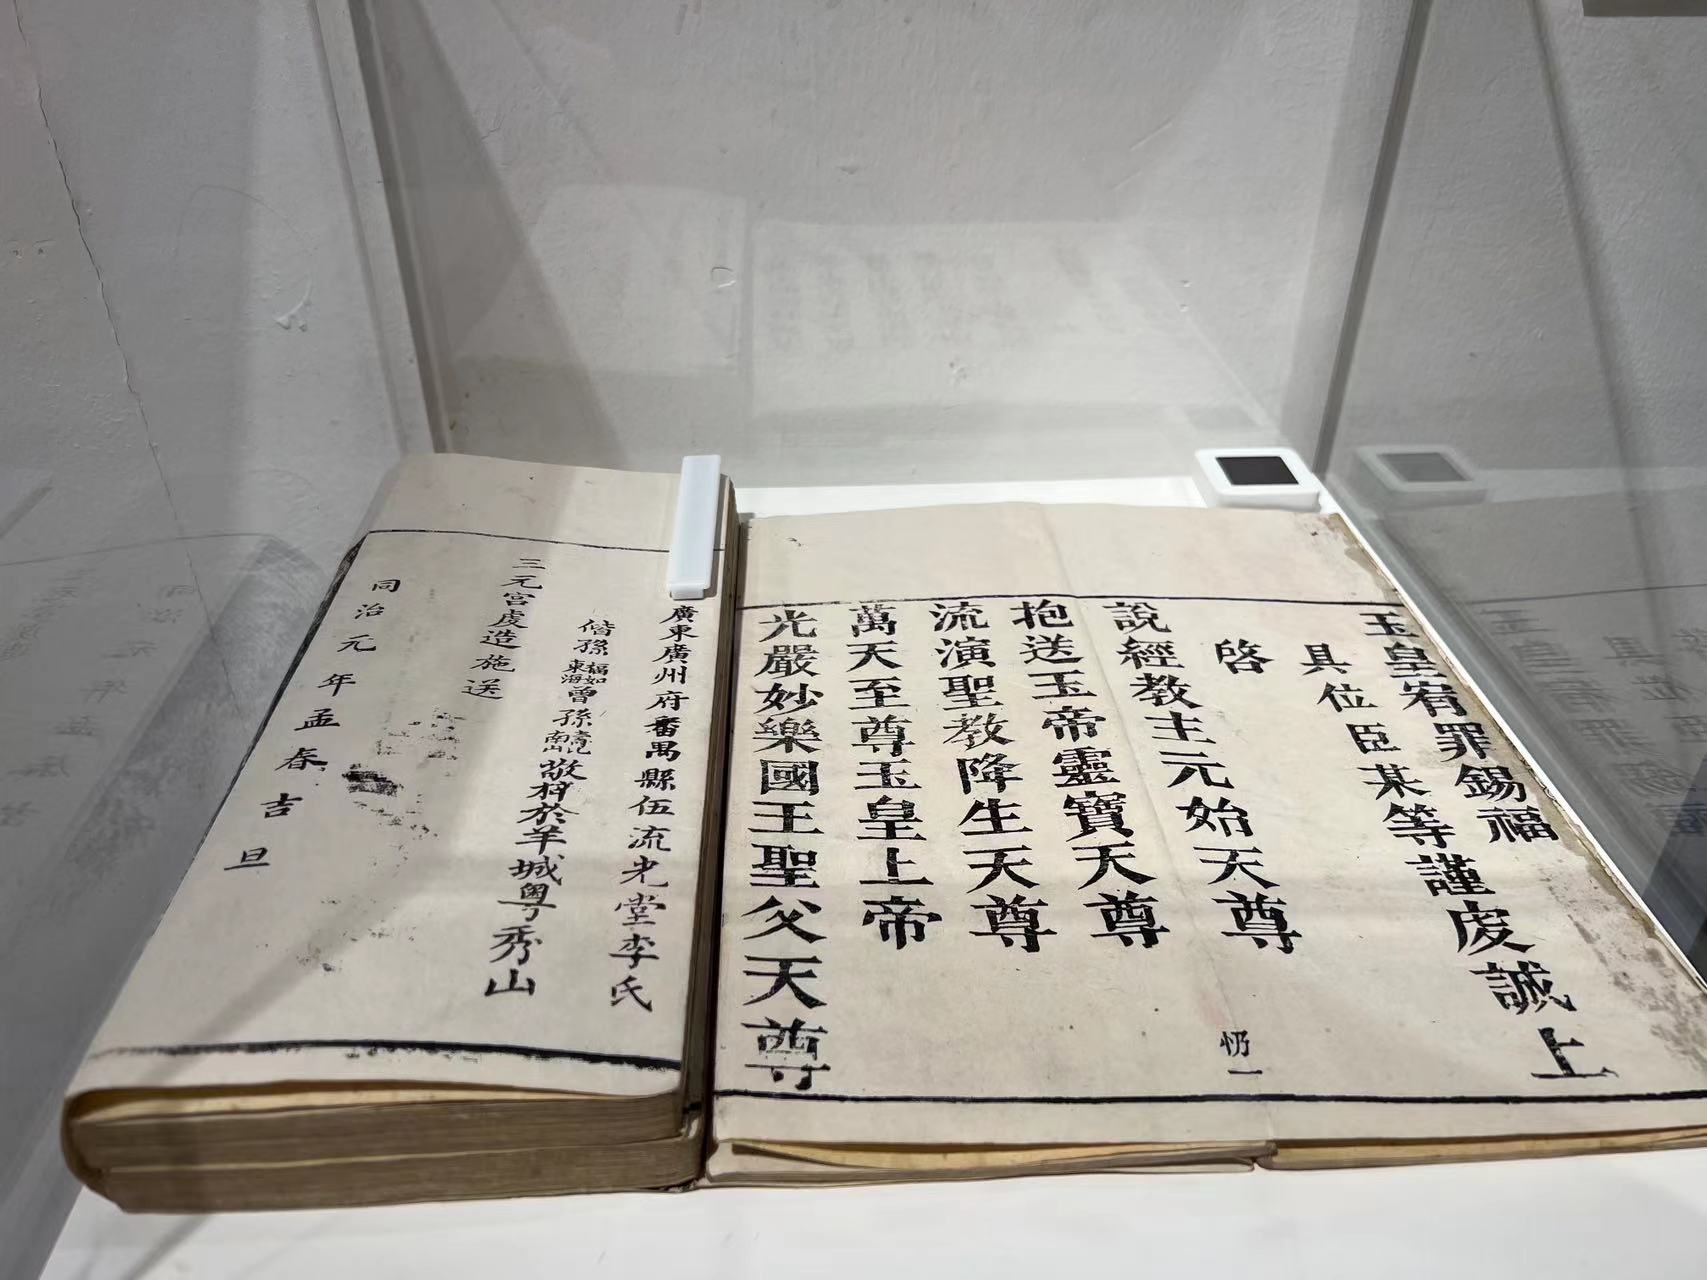 玉皇宥罪錫福
具位臣某等謹虔誠上
啓
說經教主元始天尊
抱送玉帝靈寶天尊
流演聖教降生天尊
萬天至尊玉皇上帝
光嚴妙樂國王聖父天尊
一
廣東廣州府番禺縣伍流光堂李氏
偕孫福如東海曾孫南山敬梓於羊城粵秀山
三元宮虔造施送
同治元年孟春吉旦